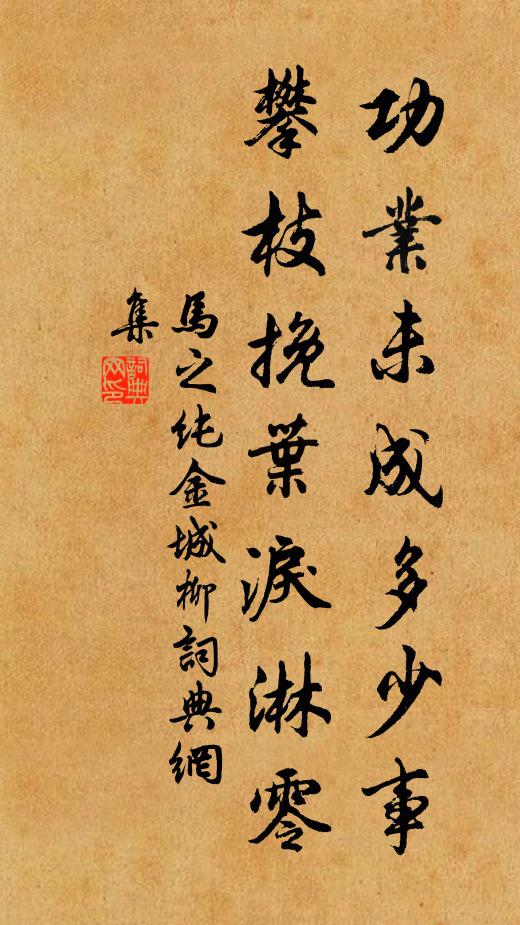 功業未成多少事
攀枝挽葉淚淋零
馬之純金城柳詞典網
集
詞典
网印